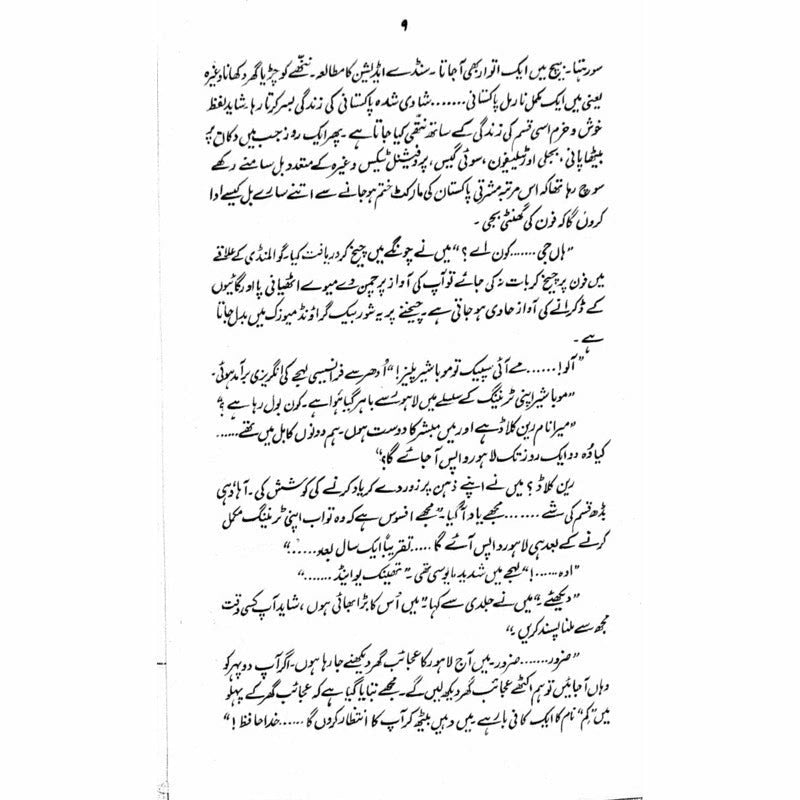 ۹
سور ہتا۔ بیچ میں ایک اتوار بھی آ جاتا ۔ سنڈے ایڈیشن کا مطالعہ ۔ ننھے کو چڑیا گھر دکھانا وغیرہ
یعنی میں ایک مکمل نارمل پاکستانی ....... شادی شدہ پاکستانی کی زندگی بسر کرتا رہا۔ شاید لفظ
خوش و خرم اسی قسم کی زندگی کے ساتھ نتھی کیا جاتا ہے ۔ پھر ایک روز جب میں دکان پر
بیٹھا پانی، بجلی اور ٹیلیفون، سوئی گیس، پروفیشنل ٹیکس وغیرہ کے متعدد بل سامنے رکھے
سوچ رہا تھا کہ اس مرتبہ مشرقی پاکستان کی مارکٹ ختم ہو جانے سے اتنے سارے بل کیسے ادا
کروں گا کہ فون کی گھنٹی بجی ۔
”ہاں جی ....... کون اے ؟“ میں نے چونگے میں چیخ کر دریافت کیا۔ گوالمنڈی کے علاقے
میں فون پر چیخ کر بات نہ کی جائے تو آپ کی آواز پر چمن دے میوے اٹھیانی پا اور گائیوں
کے ڈکرانے کی آواز حاوی ہو جاتی ہے ۔ چیخنے پر یہ شور بیک گراؤنڈ میوزک میں بدل جاتا
ہے ۔
”آلو! ...... مے آئی سپیک تو موباشیر پلیز!“ اُدھر سے فرانسیسی لہجے کی انگریزی برآمد ہوئی۔
”موباشیر اپنی ٹریننگ کے سلسلے میں لاہور سے باہر گیا ہوا ہے۔ کون بول رہا ہے ؟“
”میرا نام رین کلاڈ ہے اور میں مبشر کا دوست ہوں۔ ہم دونوں کابل میں تھے ......
کیا وُہ دو ایک روز تک لاہور واپس آ جائے گا؟“
رین کلاڈ ؟ میں نے اپنے ذہن پر زور دے کر یاد کرنے کی کوشش کی۔ آہا وُہی
بڈھ قسم کی شے ....... مجھے یاد آ گیا۔ ”مجھے افسوس ہے کہ وہ تو اب اپنی ٹریننگ مکمل
کرنے کے بعد ہی لاہور واپس آئے گا ..... تقریباً ایک سال بعد ......“
”اوہ ......!“ لہجے میں شدید مایوسی تھی۔ ”تھینک یو اینڈ .......“
”دیکھئے ۔“ میں نے جلدی سے کہا۔ ”میں اُس کا بڑا بھائی ہوں ، شاید آپ کسی وقت
مجھ سے ملنا پسند کریں ۔“
”ضرور ....... ضرور۔ میں آج لاہور کا عجائب گھر دیکھنے جا رہا ہوں۔ اگر آپ دوپہر کو
وہاں آ جائیں تو ہم اکٹھے عجائب گھر دیکھ لیں گے۔ مجھے بتایا گیا ہے کہ عجائب گھر کے پہلو
میں ”کِم“ نام کا ایک کافی بار ہے میں وہیں بیٹھ کر آپ کا انتظار کروں گا ...... خدا حافظ !“